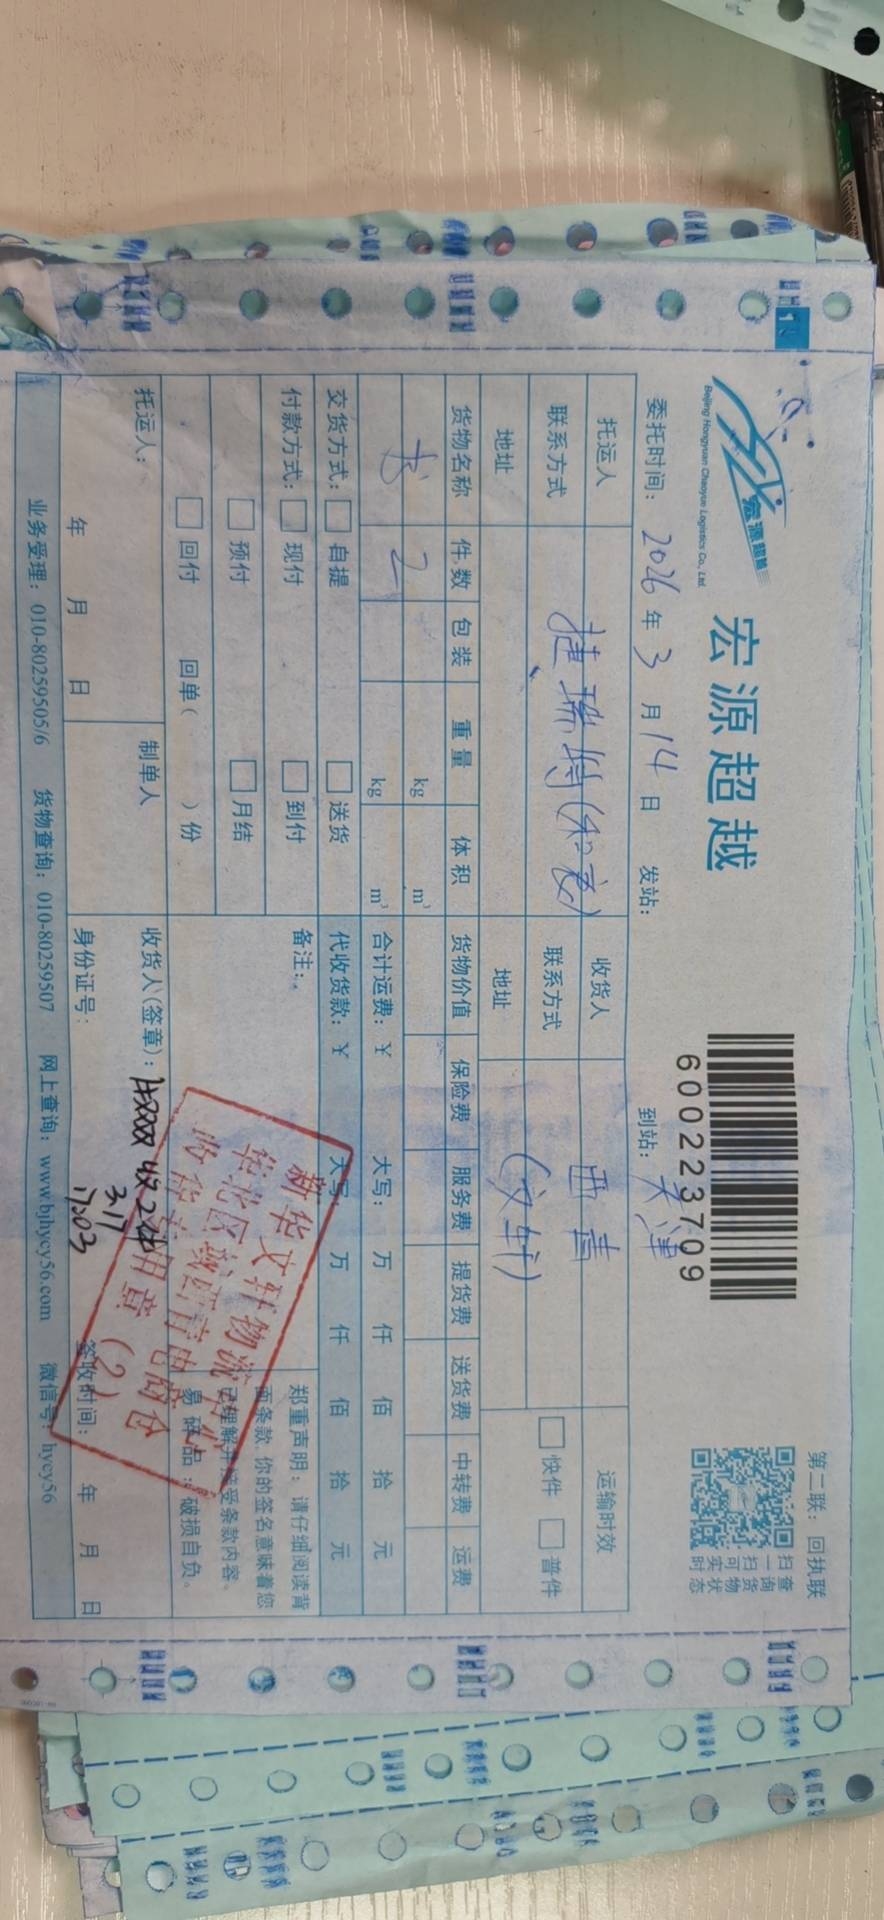 宏源超越
Beijing Hongyuan Chaoyue Logistics Co., Ltd.
宏源超越
600223709
第二联：回执联
扫查
一询
扫货
可物
实状
时态
委托时间：2026年3月14日 发站： 到站：天津
托运人 捷瑞特(和谊) 收货人 西青 运输时效
联系方式 联系方式 (文轩) 快件 普件
地址 地址
货物名称 件数 包装 重量 体积 货物价值 保险费 服务费 提货费 送货费 中转费 运费
书 2 kg m³
kg m³ 合计运费：¥ 大写： 万 仟 佰 拾 元
交货方式： 自提 送货 代收货款：¥ 大写： 万 仟 佰 拾 元
付款方式： 现付 到付 备注：
预付 月结
回付 回单（ ）份
郑重声明：请仔细阅读背
面条款，你的签名意味着您
已理解并接受条款内容。
易碎品：破损自负。
托运人： 制单人 收货人(签章)： 收2件
3.17
17:03
年 月 日 身份证号： 签收时间： 年 月 日
新华文轩物流
华北区域西青电商仓
收货专用章(2)
业务受理：010-80259505/6 货物查询：010-80259507 网上查询：www.bjhycy56.com 微信号：hycy56